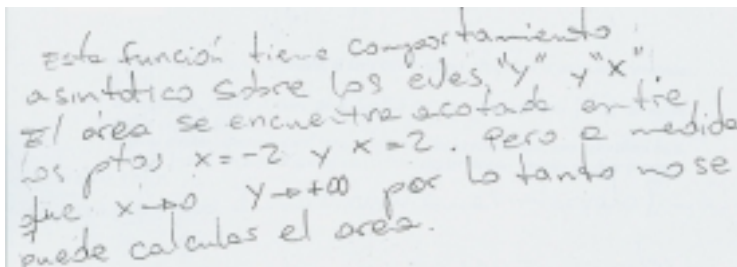 Esta función tiene comportamiento
asintótico sobre los ejes "y" y "x"
El área se encuentra acotada entre
los ptos x=-2 y x=2. Pero a medida
que x→0 y→+∞ por lo tanto no se
puede calcular el area.